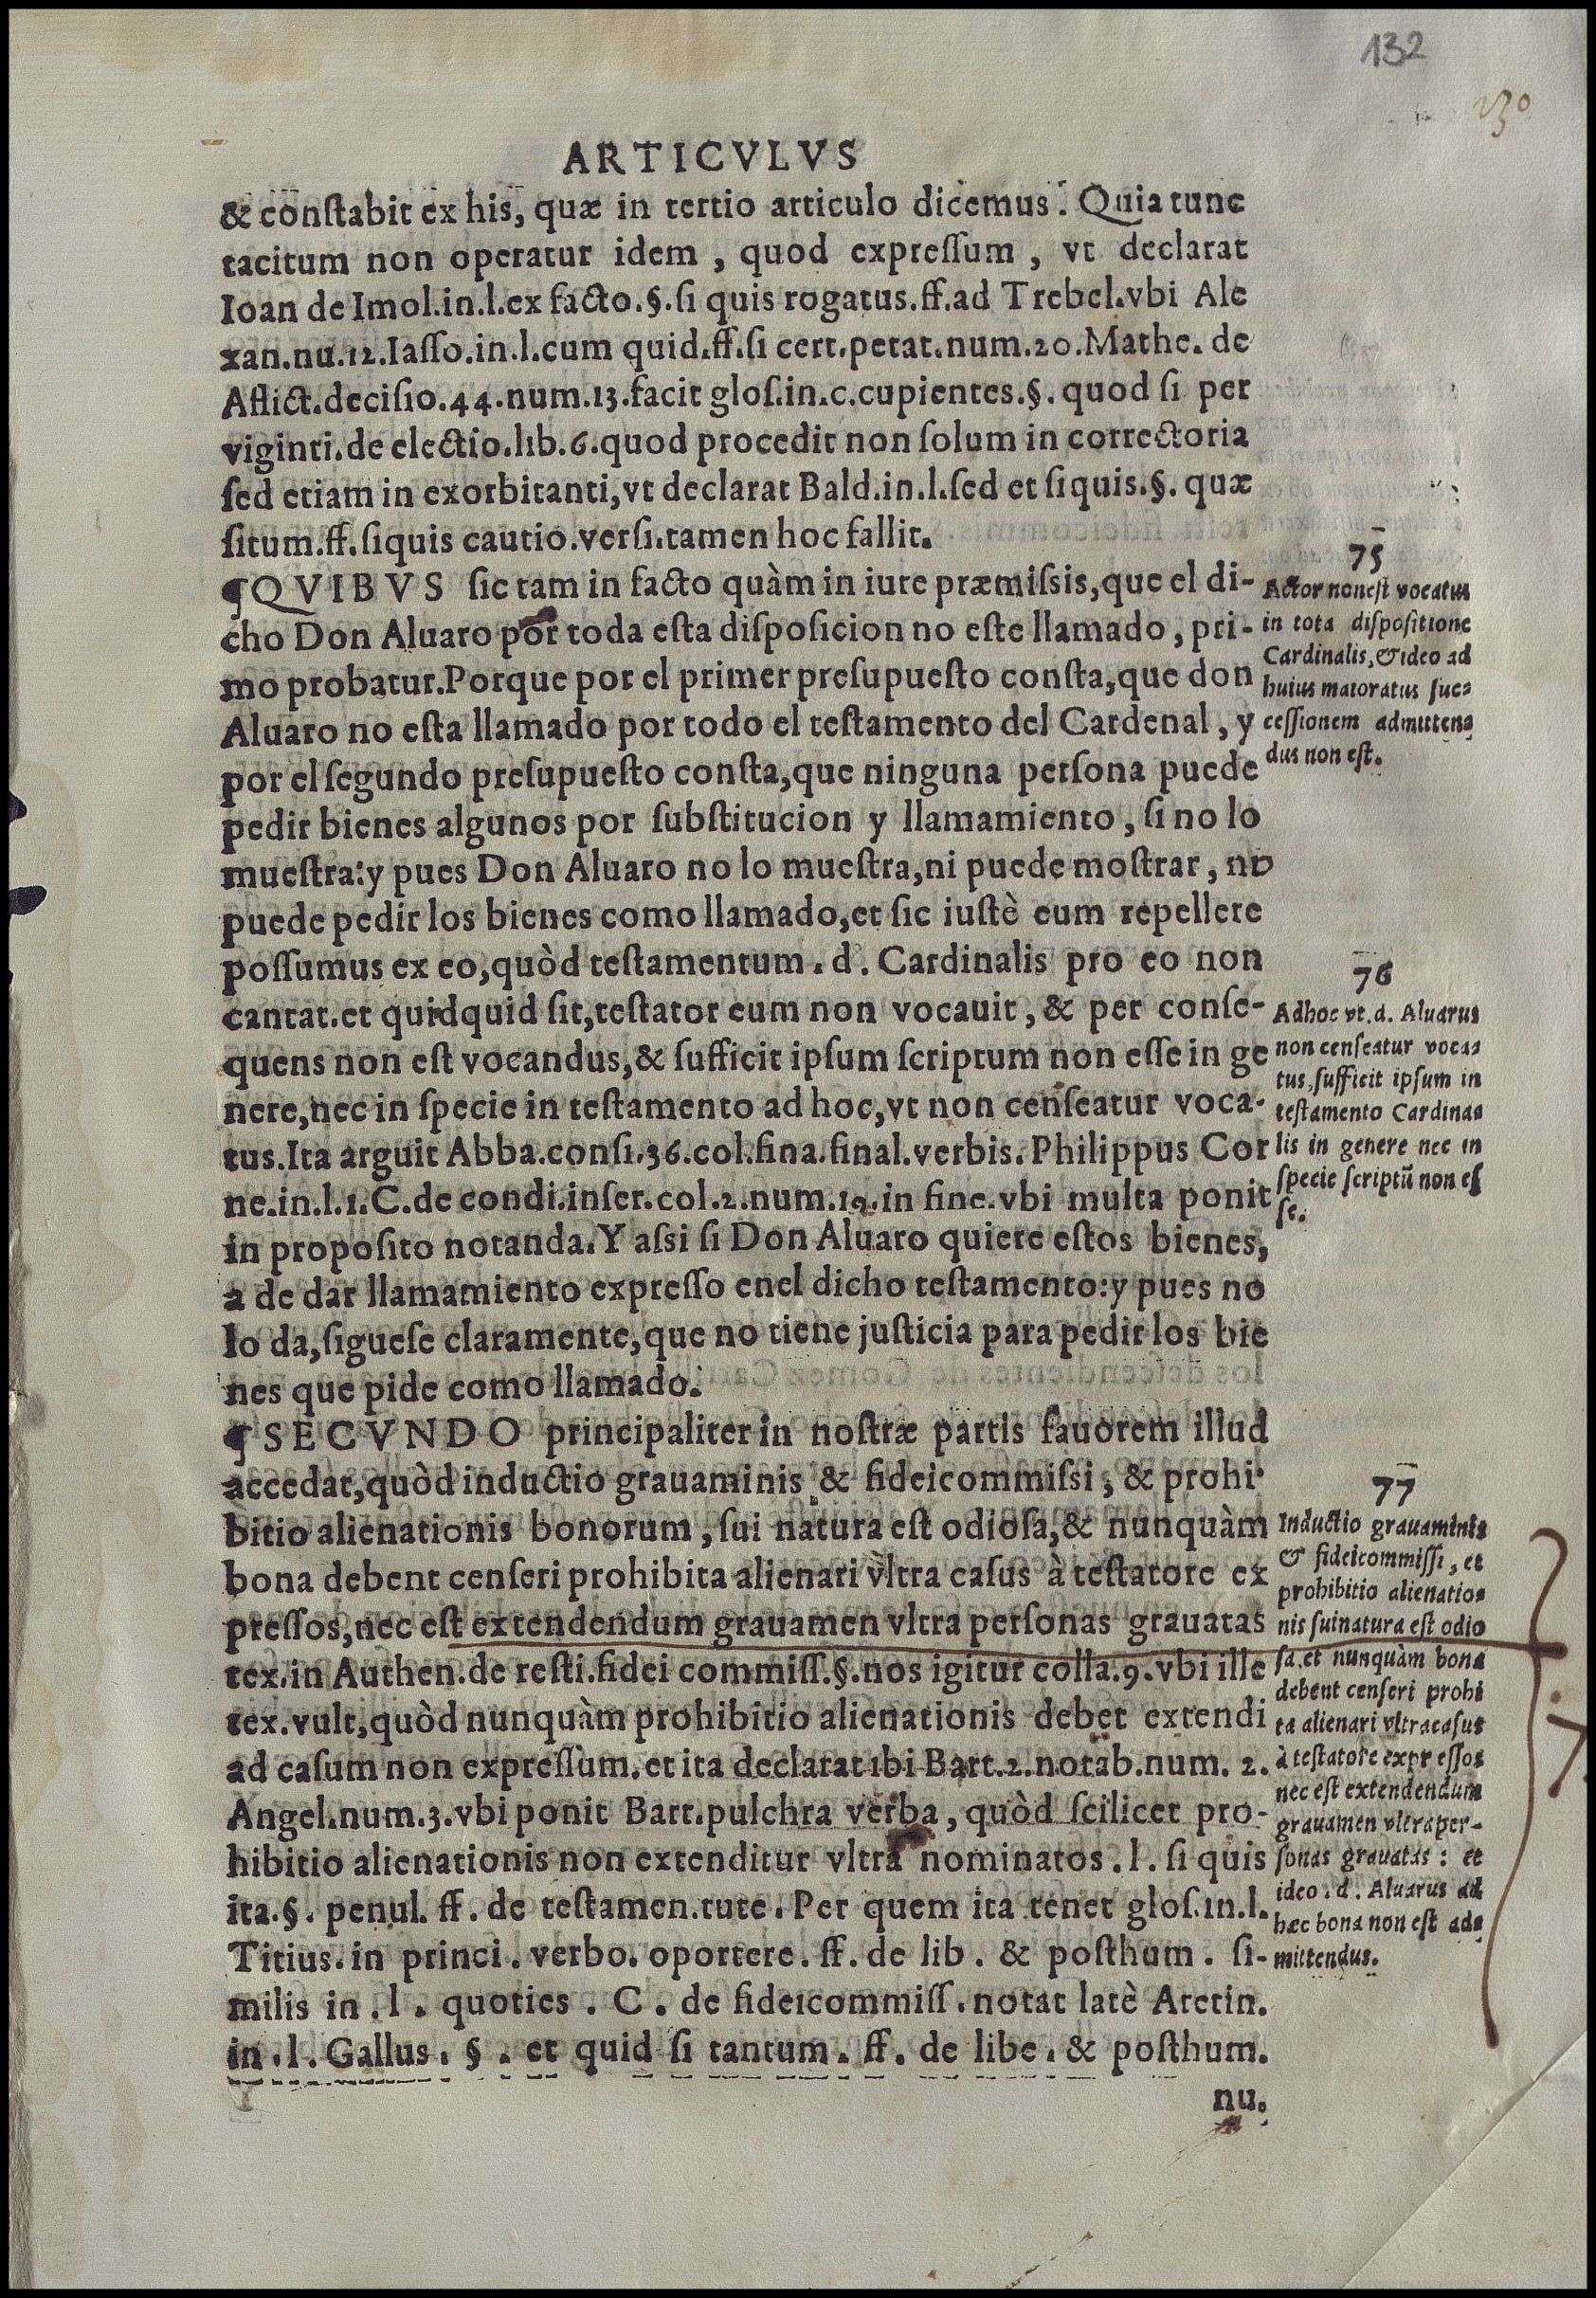 132
230
ARTICVLVS
& conſtabit ex his, quæ in tertio articulo dicemus. Quia tunc
tacitum non operatur idem, quod expreſſum, vt declarat
Ioan de Imol.in.l.ex facto.§.ſi quis rogatus.ff.ad Trebel.vbi Ale
xan.nu.12.Iaſſo.in.l.cum quid.ff.ſi cert.petat.num.20.Mathe. de
Aflict.deciſio.44.num.13.facit gloſ.in.c.cupientes.§. quod ſi per
viginti.de electio.lib.6.quod procedit non ſolum in correctoria
ſed etiam in exorbitanti,vt declarat Bald.in.l.ſed et ſiquis.§. quæ
ſitum.ff.ſiquis cautio.verſi.tamen hoc fallit.
¶QVIBVS ſic tam in facto quàm in iure præmiſsis,que el di-
cho Don Aluaro por toda eſta diſpoſicion no eſte llamado, pri-
mo probatur.Porque por el primer preſupueſto conſta,que don
Aluaro no eſta llamado por todo el teſtamento del Cardenal, y
por el ſegundo preſupueſto conſta,que ninguna perſona puede
pedir bienes algunos por ſubſtitucion y llamamiento, ſi no lo
mueſtra:y pues Don Aluaro no lo mueſtra,ni puede moſtrar, no
puede pedir los bienes como llamado,et ſic iuſtè eum repellere
poſſumus ex eo,quòd teſtamentum. d. Cardinalis pro eo non
cantat.et quidquid ſit,teſtator eum non vocauit, & per conſe-
quens non eſt vocandus,& ſufficit ipſum ſcriptum non eſſe in ge
nere,nec in ſpecie in teſtamento ad hoc,vt non cenſeatur voca-
tus.Ita arguit Abba.conſi.36.col.fina.final.verbis. Philippus Cor
ne.in.l.1.C.de condi.inſer.col.2.num.19.in fine.vbi multa ponit
in propoſito notanda.Y aſsi ſi Don Aluaro quiere eſtos bienes,
a de dar llamamiento expreſſo enel dicho teſtamento:y pues no
lo da,ſigueſe claramente,que no tiene juſticia para pedir los bie
nes que pide como llamado.
¶SECVNDO principaliter in noſtræ partis fauorem illud
accedat,quòd inductio grauaminis & fideicommiſsi, & prohi-
bitio alienationis bonorum, ſui natura eſt odioſa,& nunquàm
bona debent cenſeri prohibita alienari vltra caſus à teſtatore ex
preſſos,nec eſt extendendum grauamen vltra perſonas grauatas
tex.in Authen.de reſti.fidei commiſſ.§.nos igitur colla.9.vbi ille
tex.vult,quòd nunquàm prohibitio alienationis debet extendi
ad caſum non expreſſum.et ita declarat ibi Bart.2.notab.num. 2.
Angel.num.3.vbi ponit Bart.pulchra verba, quòd ſcilicet pro-
hibitio alienationis non extenditur vltra nominatos.l. ſi quis
ita.§. penul. ff. de teſtamen.tute. Per quem ita tenet gloſ.in.l.
Titius.in princi. verbo. oportere. ff. de lib. & poſthum. ſi-
milis in.l. quoties. C. de fideicommiſſ.notat latè Aretin.
in.l. Gallus. §. et quid ſi tantum. ff. de libe. & poſthum.
nu.
75
Actor non eſt vocatus
in tota diſpoſitione
Cardinalis,& ideo ad
huius maioratus ſuc-
ceſſionem admitten-
dus non eſt.
76
Ad hoc vt.d. Aluarus
non cenſeatur voca-
tus,ſufficit ipſum in
teſtamento Cardina-
lis in genere nec in
ſpecie ſcriptũ non eſ
ſe.
77
Inductio grauaminis
& fideicommiſſi, et
prohibitio alienatio-
nis ſui natura eſt odio
ſa.et nunquàm bona
debent cenſeri prohi
ta alienari vltra caſus
à teſtatore expreſſos
nec eſt extendendum
grauamen vltra per-
ſonas grauatas: et
ideo.d. Aluarus ad
hæc bona non eſt ad-
mittendus.